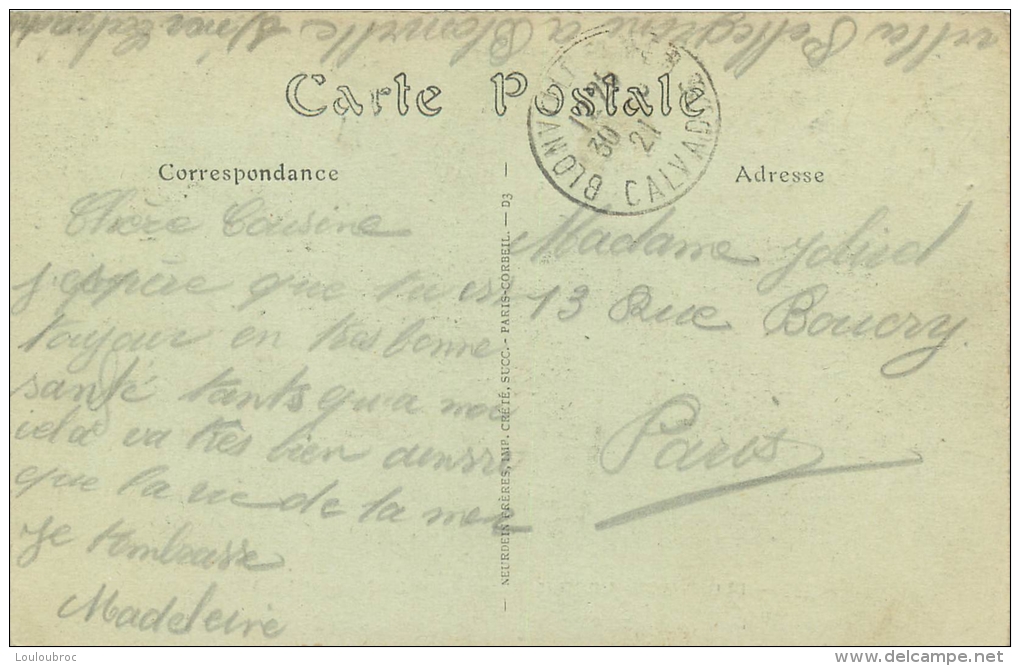 villa Pellegrini a Blonville s/mer Calvados
Carte Postale
BLONVILLE S/MER
12 25
30 - 8
21
CALVADOS
Correspondance
Adresse
Chère Cousine
J'espère que tu es
toujour en tres bonne
santé tants qu'a moi
cela va très bien ainssi
que la vie de la mer
Je t'embrasse
Madeleine
Madame Jolied
13 Rue Boucry
Paris
— NEURDEIN FRÈRES, IMP. CRÉTÉ, SUCC. — PARIS-CORBEIL. — D3 —
Louloubroc
http://www.delcampe.net